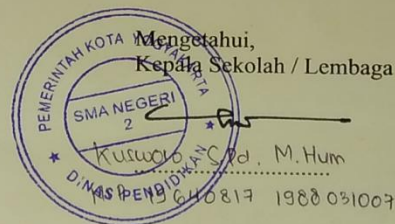 Mengetahui,
Kepala Sekolah / Lembaga
PEMERINTAH KOTA YOGYAKARTA
SMA NEGERI
2
DINAS PENDIDIKAN
Kusworo, S.Pd, M.Hum
NIP 19640817 1988 031007